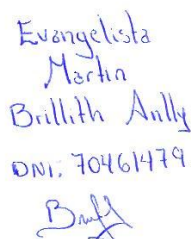 Evangelista
Martin
Brillith Anlly
DNI: 70461479